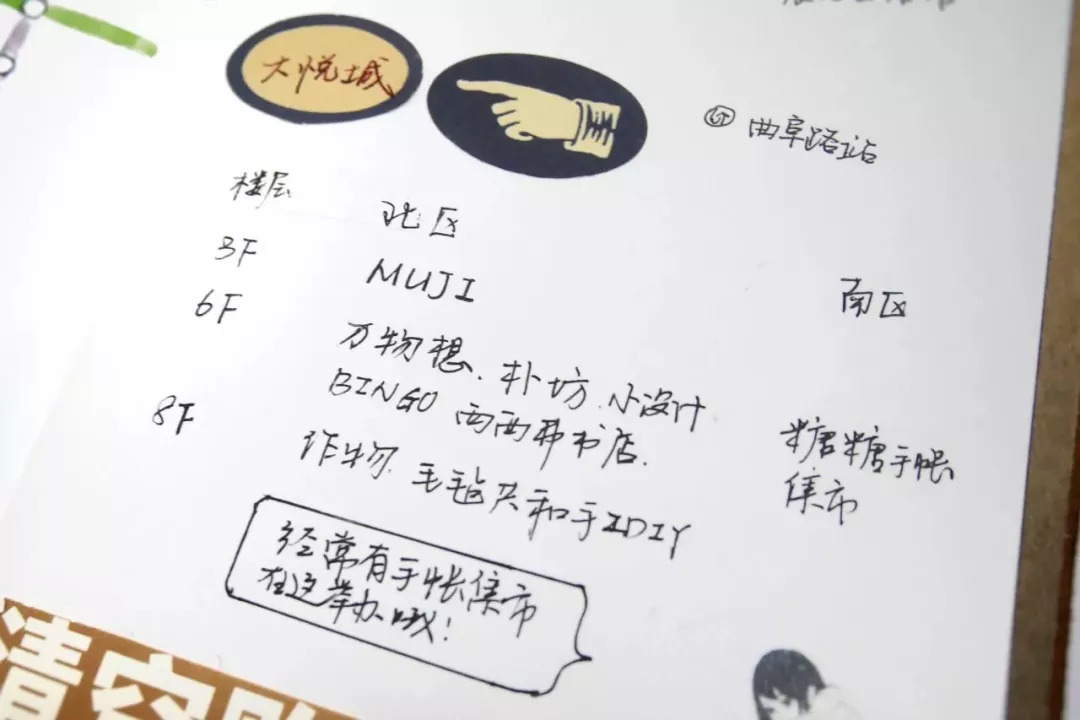 大悦城
曲阜路站
楼层 北区 南区
3F MUJI
6F 万物想、朴坊、小设计
BINGO 西西弗书店.
糖糖手帐
集市
8F 作物 毛毡共和手工DIY
经常有手帐集市
在这举办哦!
清空